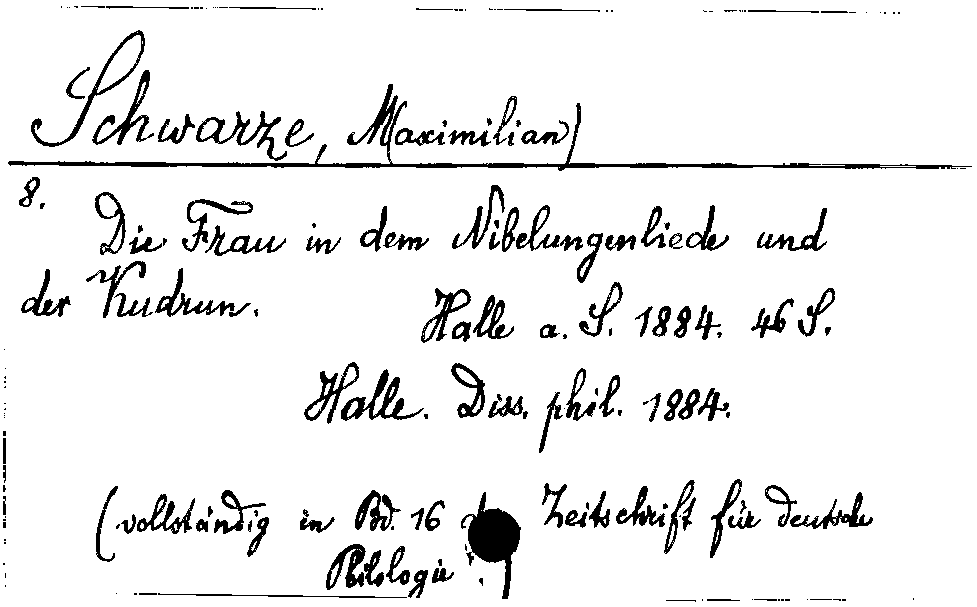 Schwarze, M(aximilian)
8.
Die Frau in dem Nibelungenliede und
der Kudrun.
Halle a. S. 1884. 46 S.
Halle. Diss. phil. 1884.
(vollständig in Bd. 16 Zeitschrift für deutsche
Philologie.)